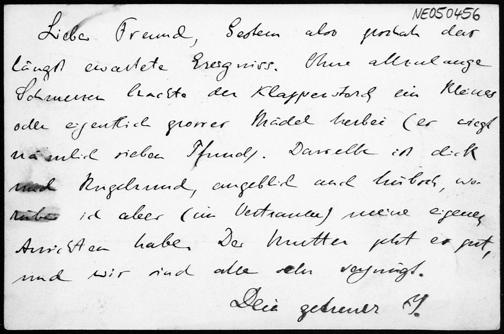 NE050456
Lieber Freund, Gestern also geschah das
längst erwartete Ereigniss. Ohne allzulange
Schmerzen brachte der Klapperstorch ein kleines
oder eigentlich grosses Mädel herbei (er wiegt
nämlich sieben Pfund). Dasselbe ist dick
und Kugelrund, angeblich auch hübsch, wo-
rüber ich aber (im Vertrauen) meine eigenen
Ansichten habe. Der Mutter geht es gut,
und wir sind alle sehr vergnügt.
Dein getreuer